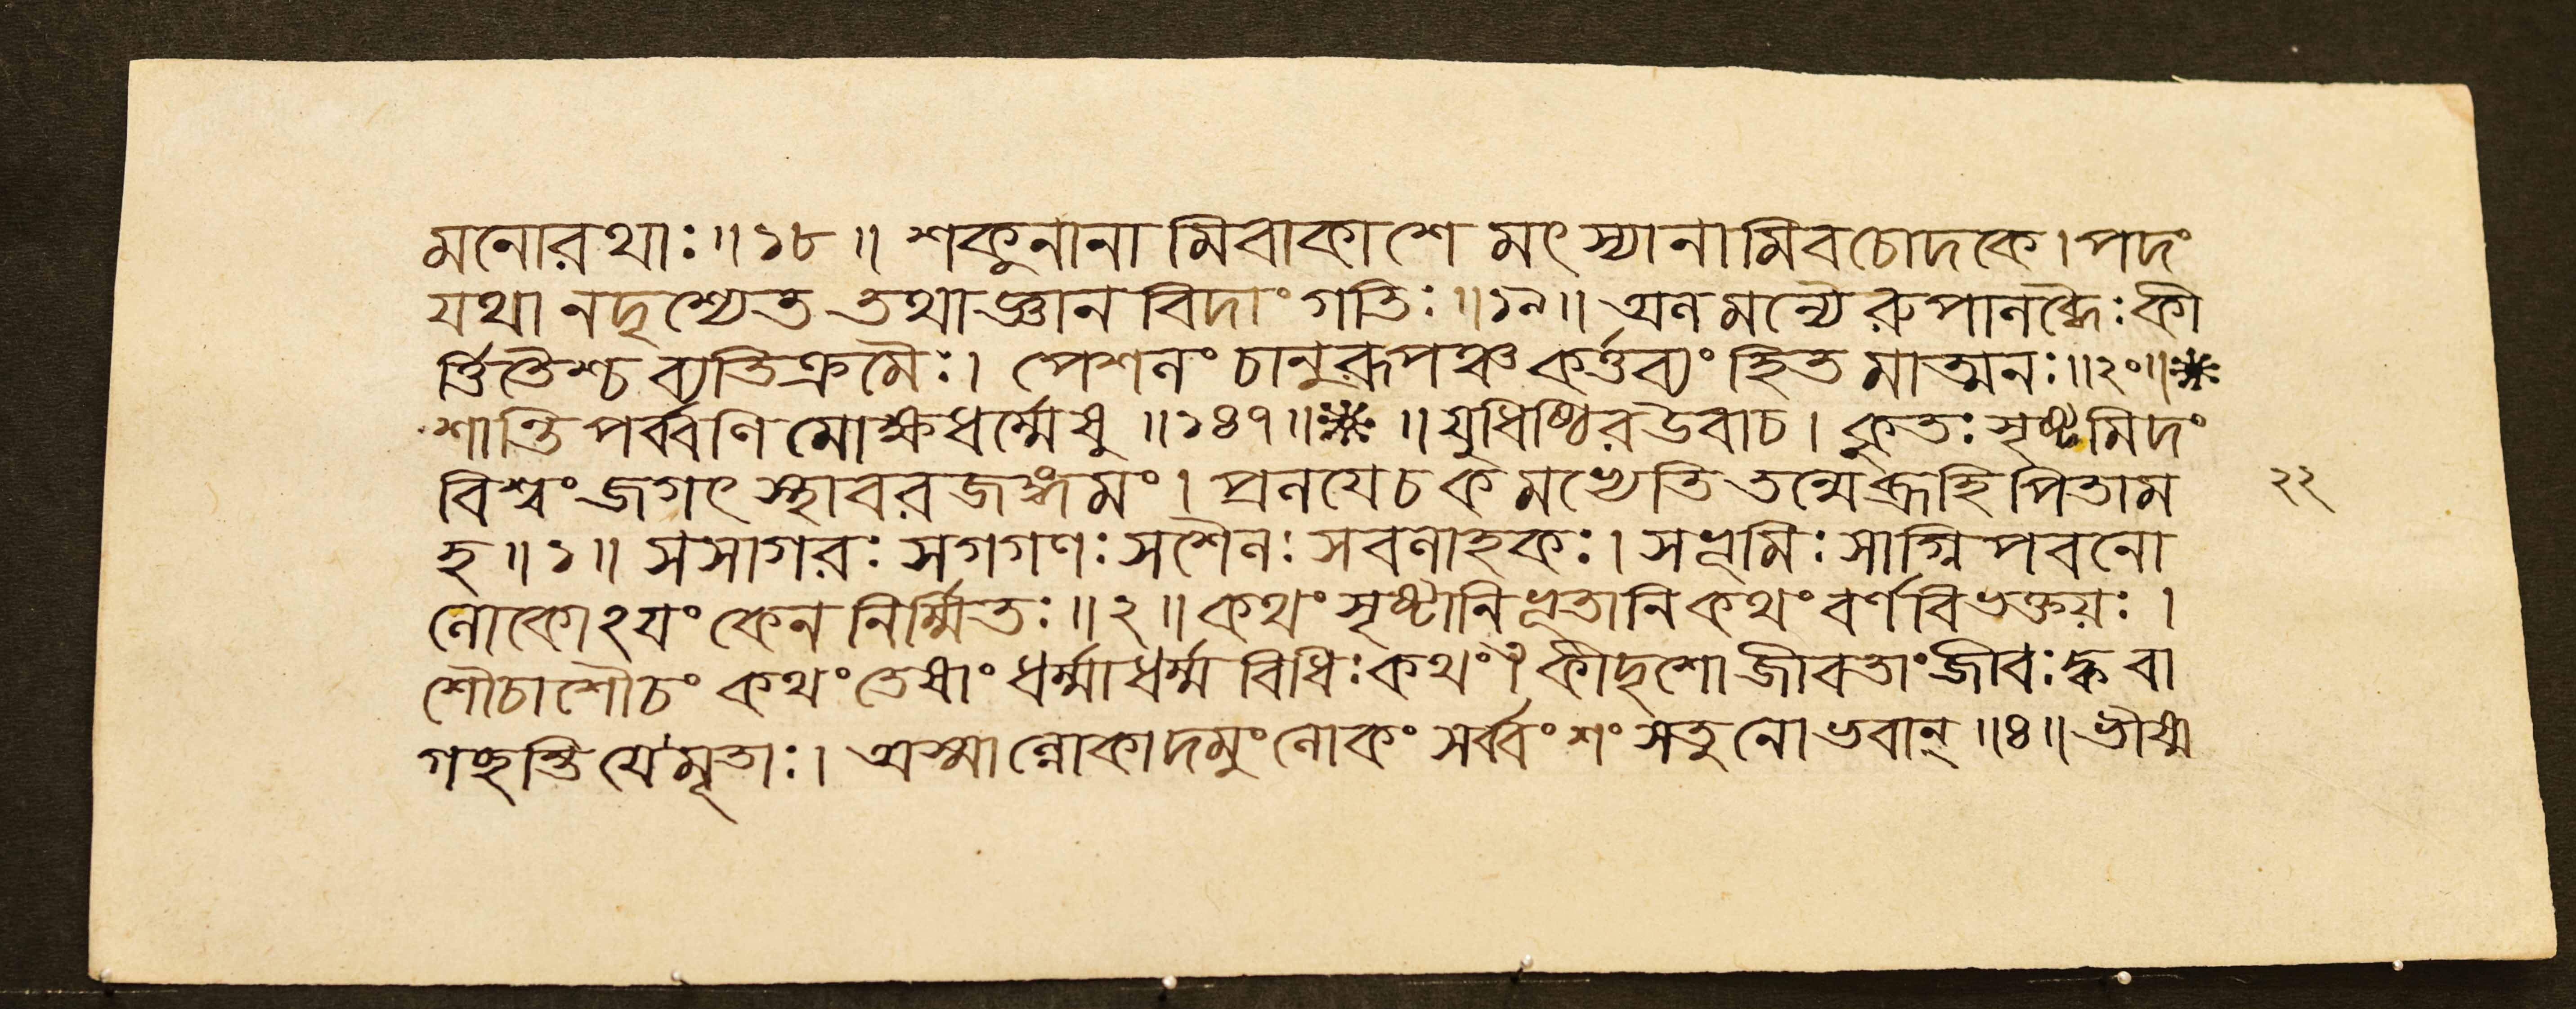 মনোরথাঃ॥১৮॥ শকুনানামিবাকাশে মৎস্যানামিবচোদকে।পদং
যথা নদৃশ্যেত তথাজ্ঞান বিদাং গতিঃ॥১৯॥ অলমন্যৈরুপালব্ধৈঃ কী
র্ত্তিতৈশ্চ ব্যতিক্রমৈঃ। পেশলং চানুরূপঞ্চ কর্ত্তব্যং হিত মাত্মনঃ॥২০॥
শান্তি পর্ব্বণি মোক্ষধর্ম্মেষু ॥১৪৭॥ ॥ যুধিষ্ঠির উবাচ। কুতঃ সৃষ্টমিদং
বিশ্বং জগৎ স্থাবর জঙ্গমং। প্রলযে চ কমভ্যেতি তন্মেব্রূহি পিতাম
হ॥১॥ সসাগরঃ সগগণঃ সশৈলঃ সবলাহকঃ। সভূমিঃ সাগ্নি পবনো
লোকোঽযং কেন নির্ম্মিতঃ॥২॥ কথং সৃষ্টানি ভূতানি কথং বর্ণ বিভক্তয়ঃ।
শৌচাশৌচং কথং তেষাং ধর্ম্মাধর্ম্ম বিধিঃ কথং। কীদৃশো জীবতাং জীবঃ ক্ব বা
গচ্ছন্তি যে মৃতাঃ। অস্মাল্লোকাদমুং লোকং সর্ব্বং শংসতু নো ভবান্॥৪॥ ভীষ্ম
২২